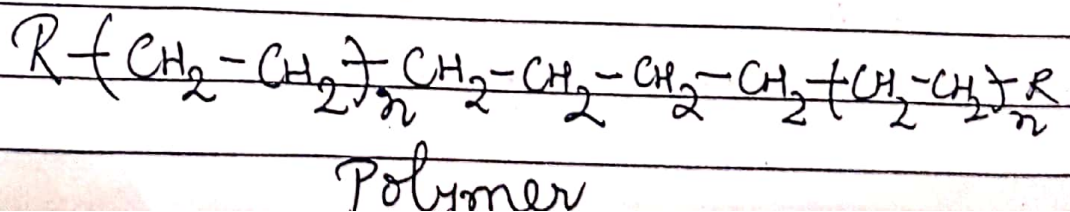 R-(CH₂-CH₂)ₙ-CH₂-CH₂-CH₂-CH₂-(CH₂-CH₂)ₙ-R
Polymer